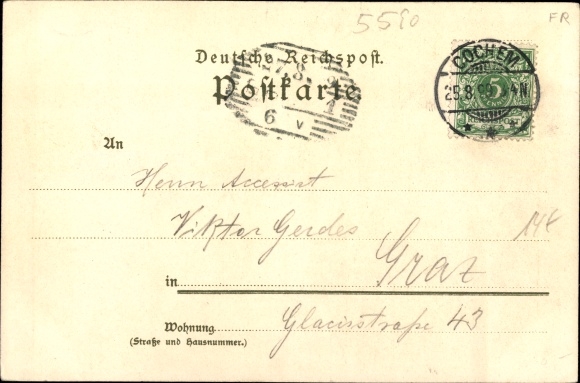 5590
FR
Deutsche Reichspost.
Postkarte
COCHEM
25.8.99.
5
6 v
An
Herrn Accessist
Viktor Gerdes
148
in Graz
Wohnung Glacisstraße 43
(Straße und Hausnummer.)